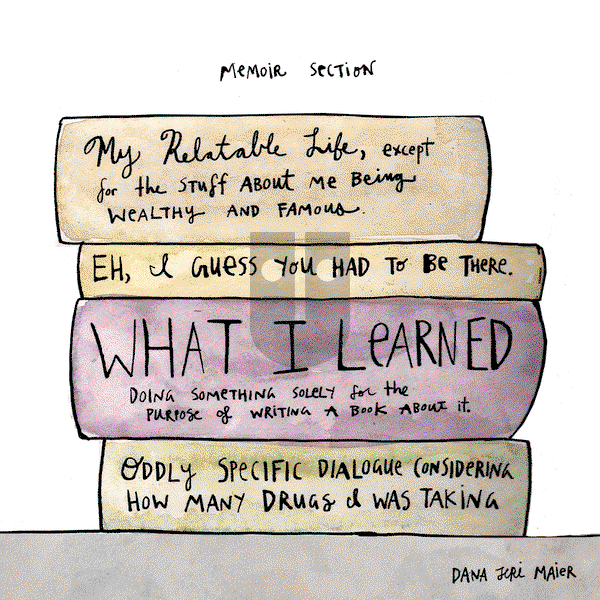 Memoir Section
My Relatable Life, except
for the stuff about me being
wealthy and famous.
Eh, I guess you had to be there.
WHAT I LEARNED
Doing something solely for the
purpose of writing a book about it.
Oddly specific dialogue considering
how many drugs I was taking
Dana Jeri Maier